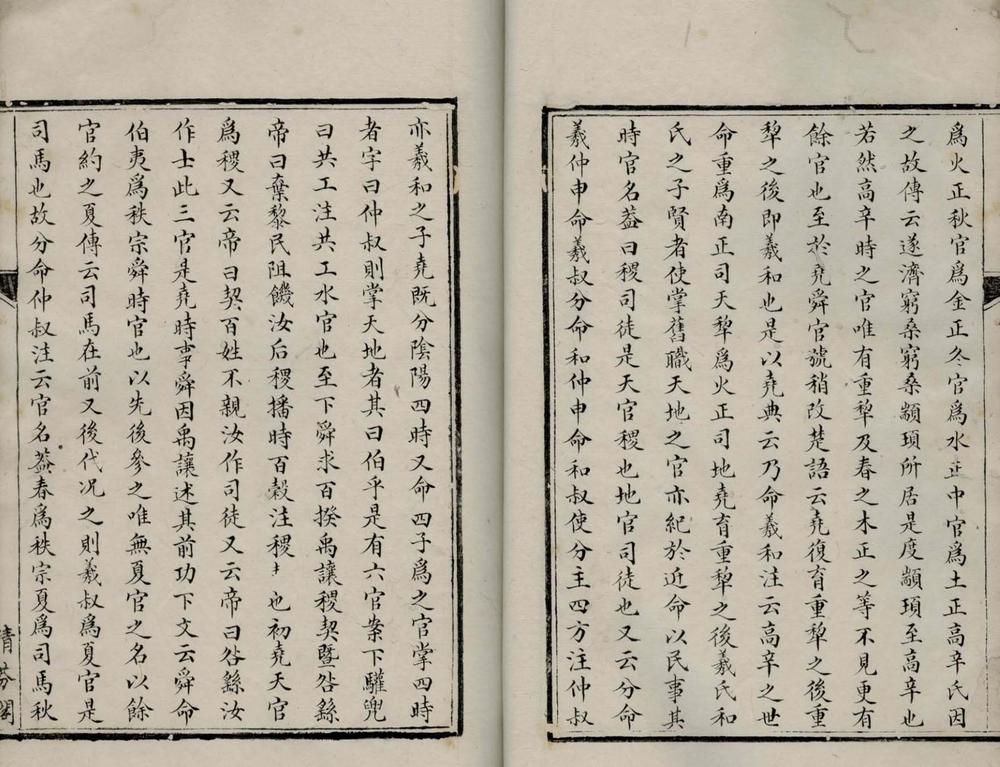 爲火正秋官爲金正冬官爲水正中官爲土正高辛氏因
之故傳云遂濟窮桑窮桑顓頊所居是度顓頊至高辛也
若然高辛時之官唯有重犂及春之木正之等不見更有
餘官也至於堯舜官號稍改楚語云堯復育重犂之後重
犂之後即羲和也是以堯典云乃命羲和注云高辛之世
命重爲南正司天犂爲火正司地堯育重犂之後羲氏和
氏之子賢者使掌舊職天地之官亦紀於近命以民事其
時官名葢曰稷司徒是天官稷也地官司徒也又云分命
羲仲申命羲叔分命和仲申命和叔使分主四方注仲叔
亦羲和之子堯既分陰陽四時又命四子爲之官掌四時
者字曰仲叔則掌天地者其曰伯乎是有六官案下驩兜
曰共工注共工水官也至下舜求百揆禹讓稷契暨咎繇
帝曰棄黎民阻饑汝后稷播時百穀注稷也初堯天官
爲稷又云帝曰契百姓不親汝作司徒又云帝曰咎繇汝
作士此三官是堯時事舜因禹讓述其前功下文云舜命
伯夷爲秩宗舜時官也以先後參之唯無夏官之名以餘
官約之夏傳云司馬在前又後代况之則羲叔爲夏官是
司馬也故分命仲叔注云官名葢春爲秩宗夏爲司馬秋
清芬閣